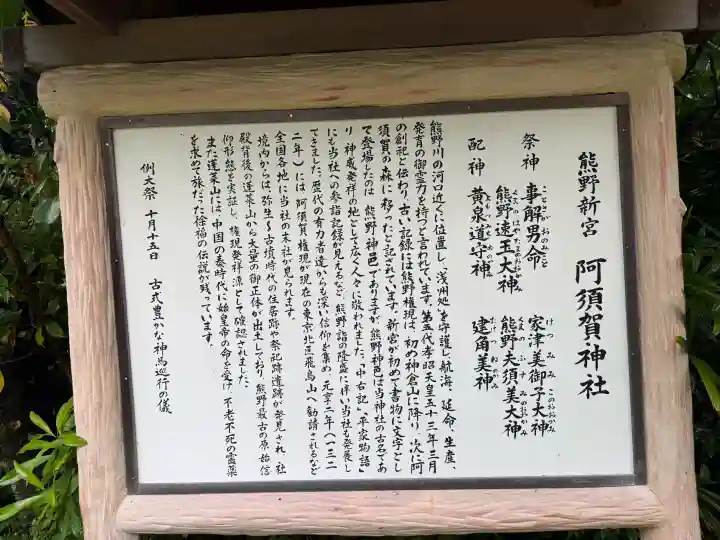 熊野新宮　阿須賀神社
祭神　事解男命　家津美御子大神
ことさかおのみこと　けつみみこのおおかみ
熊野速玉大神　熊野夫須美大神
くまのはやたまのおおかみ　くまのふすみのおおかみ
配神　黄泉道守神　建角美神
よもつちもりのかみ　たけつぬみのかみ
熊野川の河口近くに位置し、浅洲処を守護し、航海、延命、生産、
発育の御霊力を持つと言われています。第五代孝昭天皇五十三年三月
の創祀と伝わり、古い記録には熊野権現は、初め神倉山に降り、次に阿
須賀の森に移ったと記されています。新宮が初めて書物に文字とし
て登場したのは、熊野神邑でありますが、熊野神邑は当神社の古名であ
り、神威発祥の地として広く人々に敬われました。「中右記」、「平家物語」
にも当社への参詣記録が見えるなど、熊野詣の隆盛に伴い当社も発展し
てきました。歴代の有力者達からも深い信仰を集め、元亨二年（一三二
二年）には阿須賀権現が現在の東京北区飛鳥山へ勧請されるなど
全国各地に当社の末社が見られます。
境内からは、弥生～古墳時代の住居跡や祭祀跡遺跡が発見され、社
殿背後の蓬莱山から大量の御正体が出土しており、熊野最古の原始信
仰形態を実証し、権現発祥源として確認されました。
また蓬莱山には、中国の秦時代に始皇帝の命を受け、不老不死の霊薬
を求めて旅だった徐福の伝説が残っています。
例大祭　十月十五日　古式豊かな神馬巡行の儀